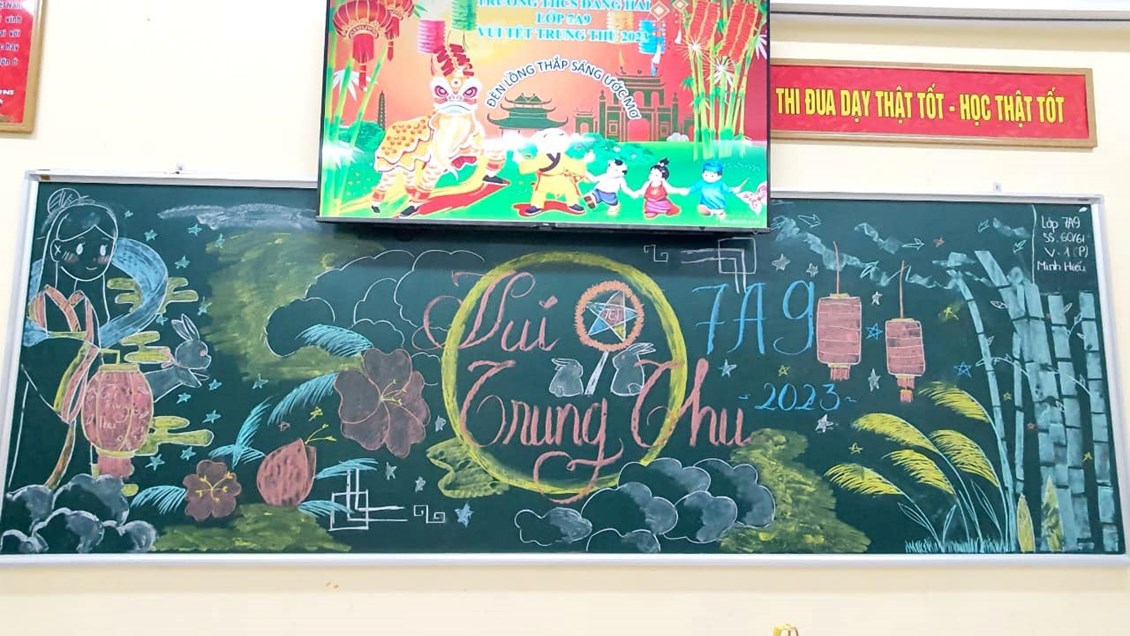 TRƯỜNG THCS ĐẰNG HẢI
LỚP 7A9
VUI TẾT TRUNG THU 2023
ĐÈN LỒNG THẮP SÁNG ƯỚC MƠ
THI ĐUA DẠY THẬT TỐT - HỌC THẬT TỐT
Lớp 7A9
SS: 60/61
V: 1 (P)
Minh Hiếu
Vui
Trung Thu
7A9
~ 2023 ~